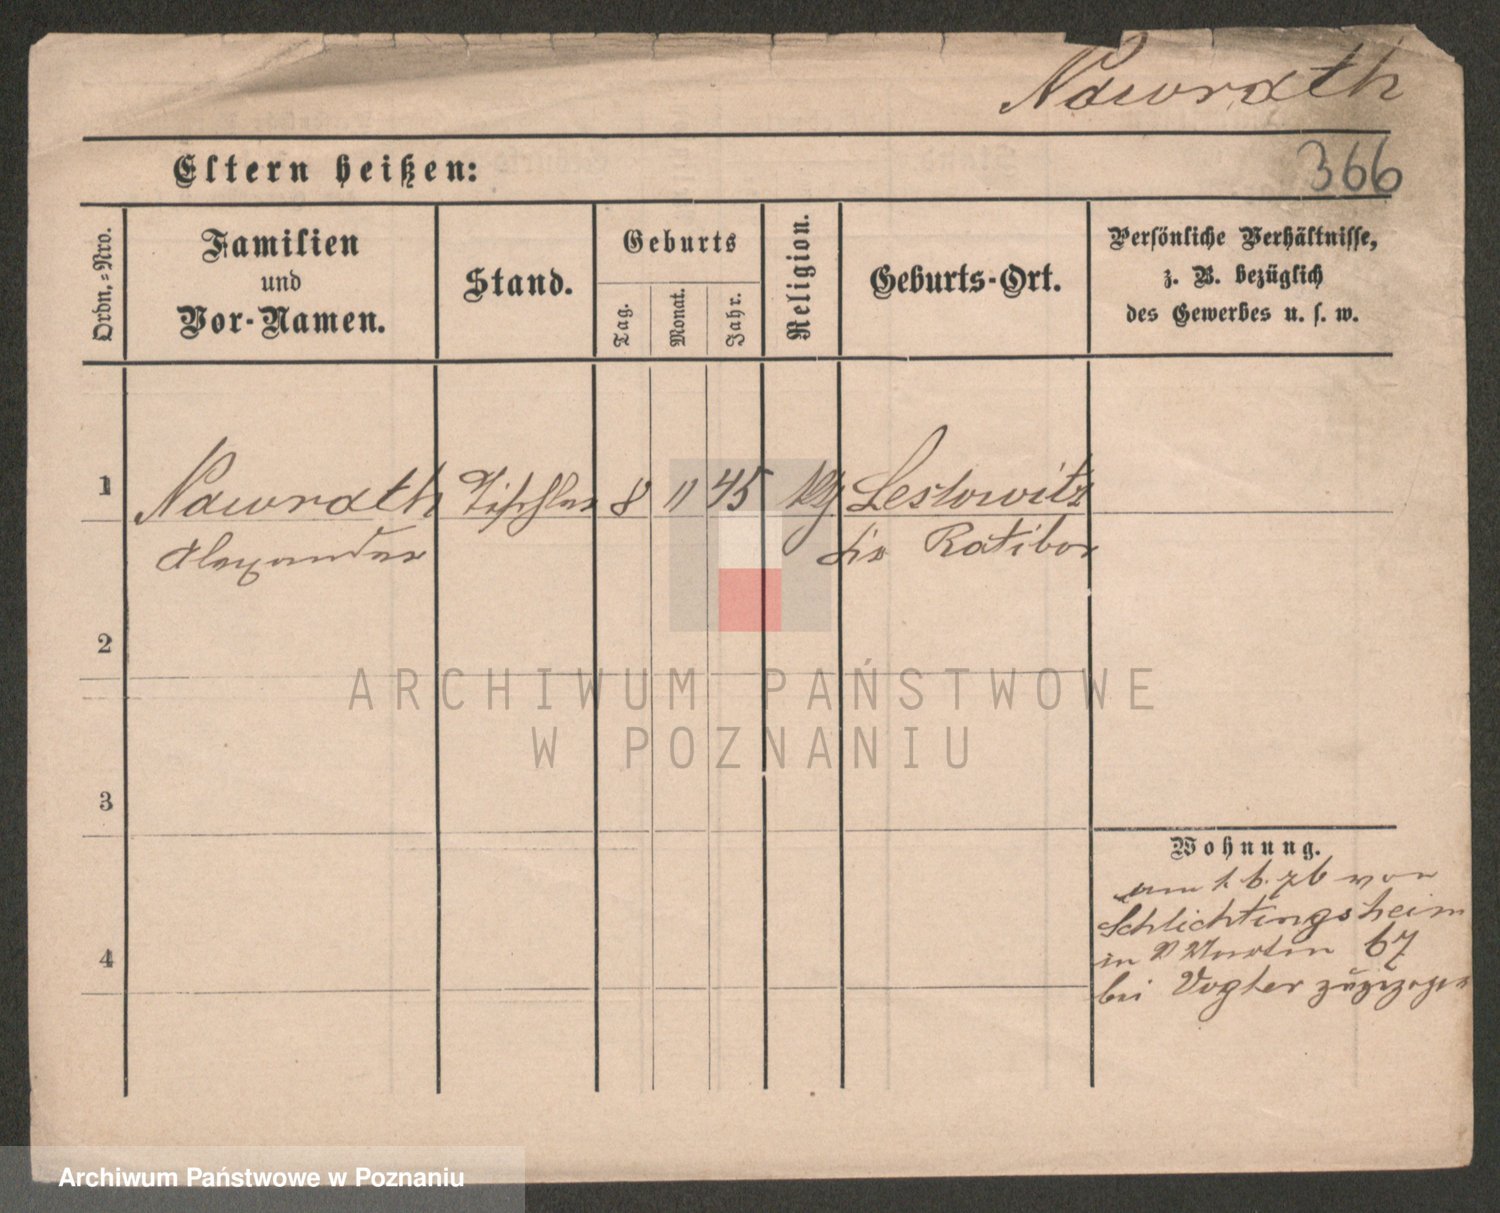 Nawrath
Eltern heißen:
366
Ordn.-Nro.
Familien
und
Vor-Namen.
Stand.
Geburts
Tag.
Monat.
Jahr.
Religion.
Geburts-Ort.
Persönliche Verhältnisse,
z. B. bezüglich
des Gewerbes u. s. w.
1
Nawrath Tischler 8 11 45 Leslowitz
Alexander Ratibor
2
ARCHIWUM PAŃSTWOWE
W POZNANIU
3
Wohnung.
am 1. 6. 76 von
Schlichtingsheim
4
in Martin 67
bei Vogler zugezogen
Archiwum Państwowe w Poznaniu